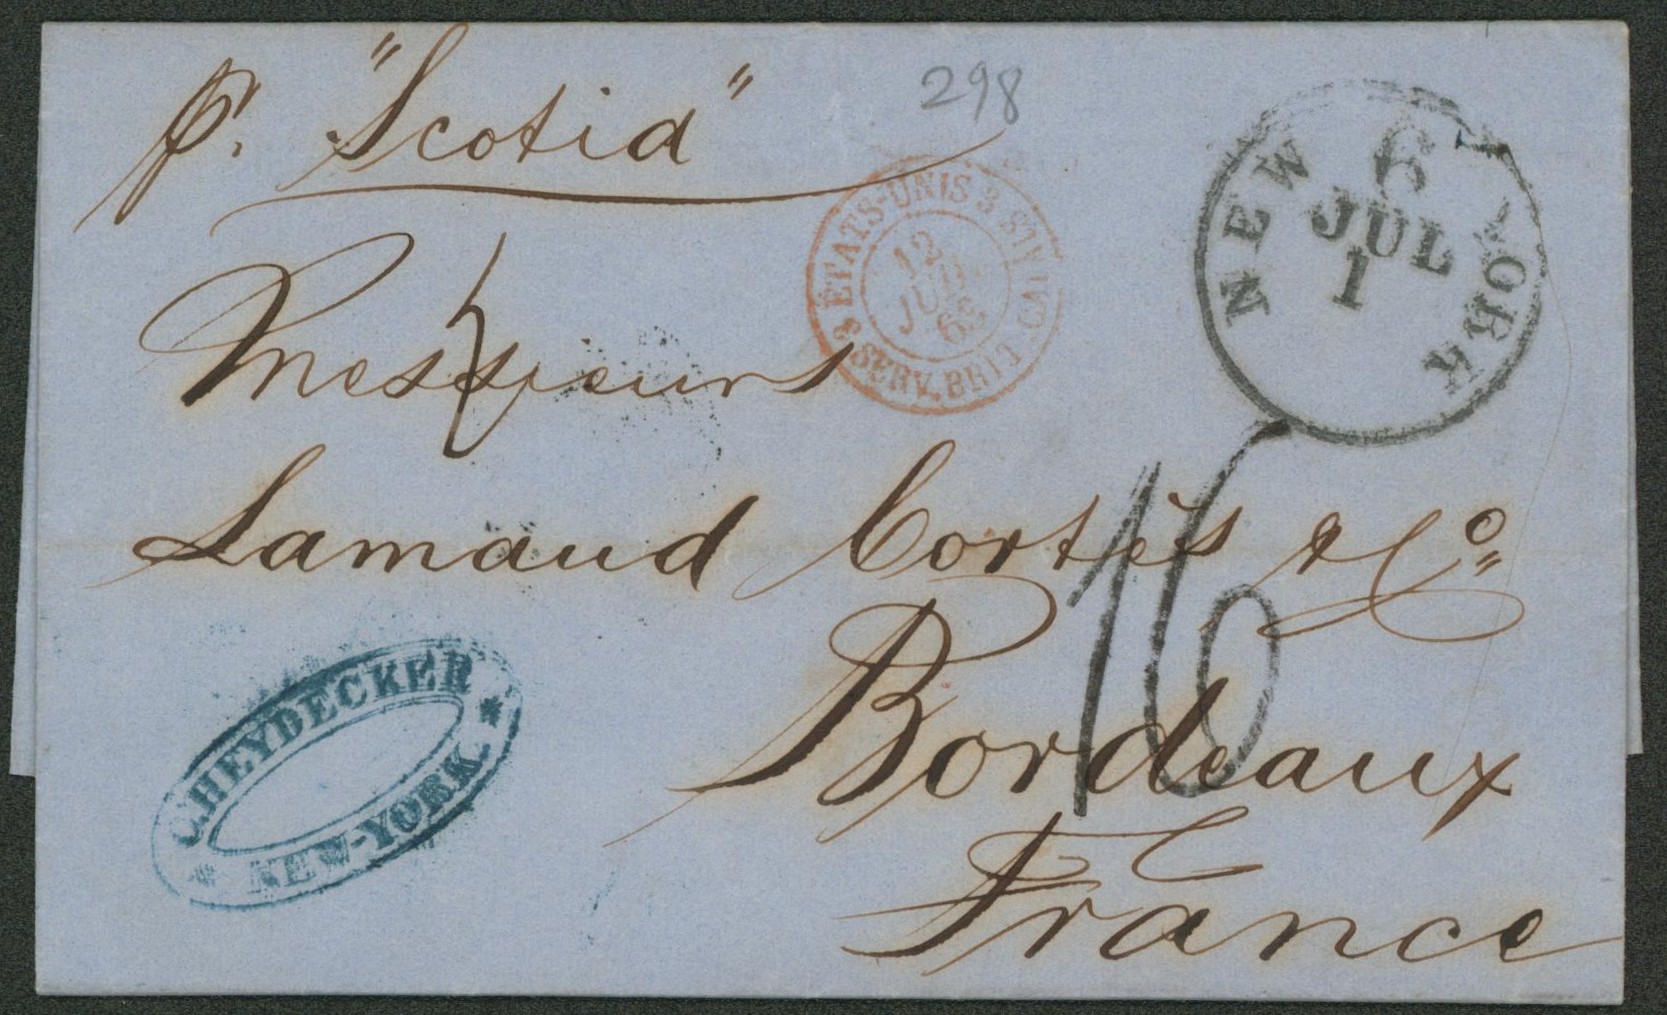 p. "Scotia"
298
NEW YORK
6
JUL
1
ETATS-UNIS
SERV. BRIT. CALAIS
12
JUIL
65
Messieurs
Lamaud Cortès & Co
16
Bordeaux
France
C. HEYDECKER
NEW-YORK